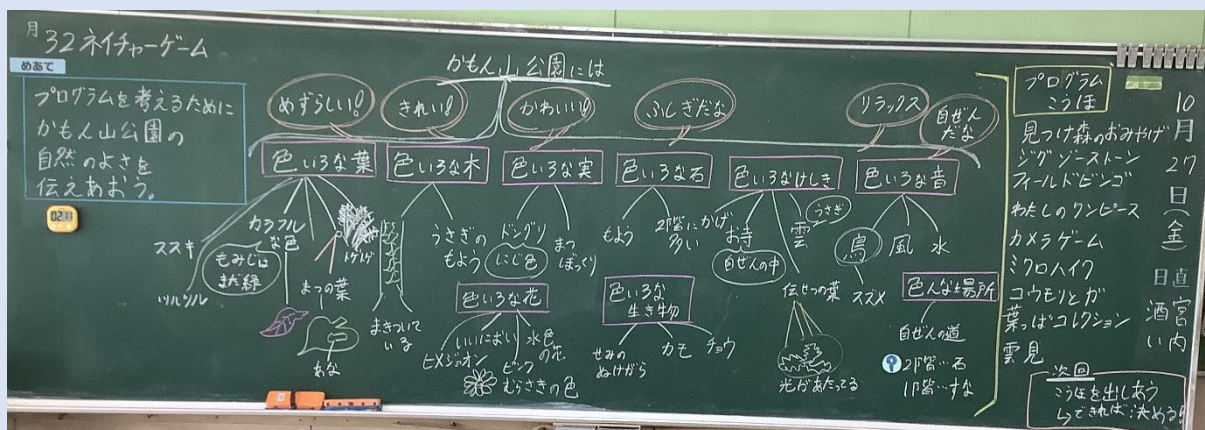 月
32 ネイチャーゲーム
めあて
プログラムを考えるために
かもん山公園の
自然のよさを
伝えあおう。
かもん山公園には
めずらしい!
きれい!
かわいい!
ふしぎだな
リラックス
自ぜん
だな
色いろな葉
ススキ
ツルツル
カラフル
な色
もみじは
まだ緑
まつの葉
あな
トゲトゲ
色いろな木
まきついて
いる
うさぎの
もよう
色いろな実
ドングリ
にじ色
まつ
ぼっくり
色いろな花
いいにおい
ヒメジオン
水色
の花
ピンク
むらさきの色
色いろな石
もよう
2階に
多い
色いろな
生き物
せみの
ぬけがら
カモ
チョウ
色いろなけしき
かげ
お寺
自ぜんの中
雲
うさぎ
伝せつの葉
光があたってる
色いろな音
鳥
スズメ
風
水
色んな場所
自ぜんの道
2階…石
1階…すな
プログラム
こうほ
見つけ森のおみやげ
ジグソーストーン
フィールドビンゴ
わたしのワンピース
カメラゲーム
ミクロハイク
コウモリとガ
葉っぱコレクション
雲見
次回
こうほを出しあう
↳できれば決める!
10月27日(金)
日直
宮内
酒い